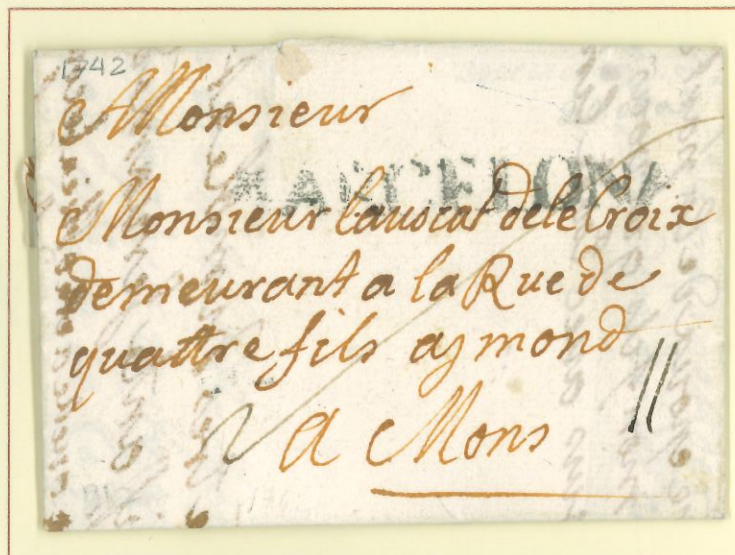 1742
A Monsieur
BARCELONA
Monsieur lavocat dele Croix
demeurant a la Rue de
quattre fils aymond
a Mons